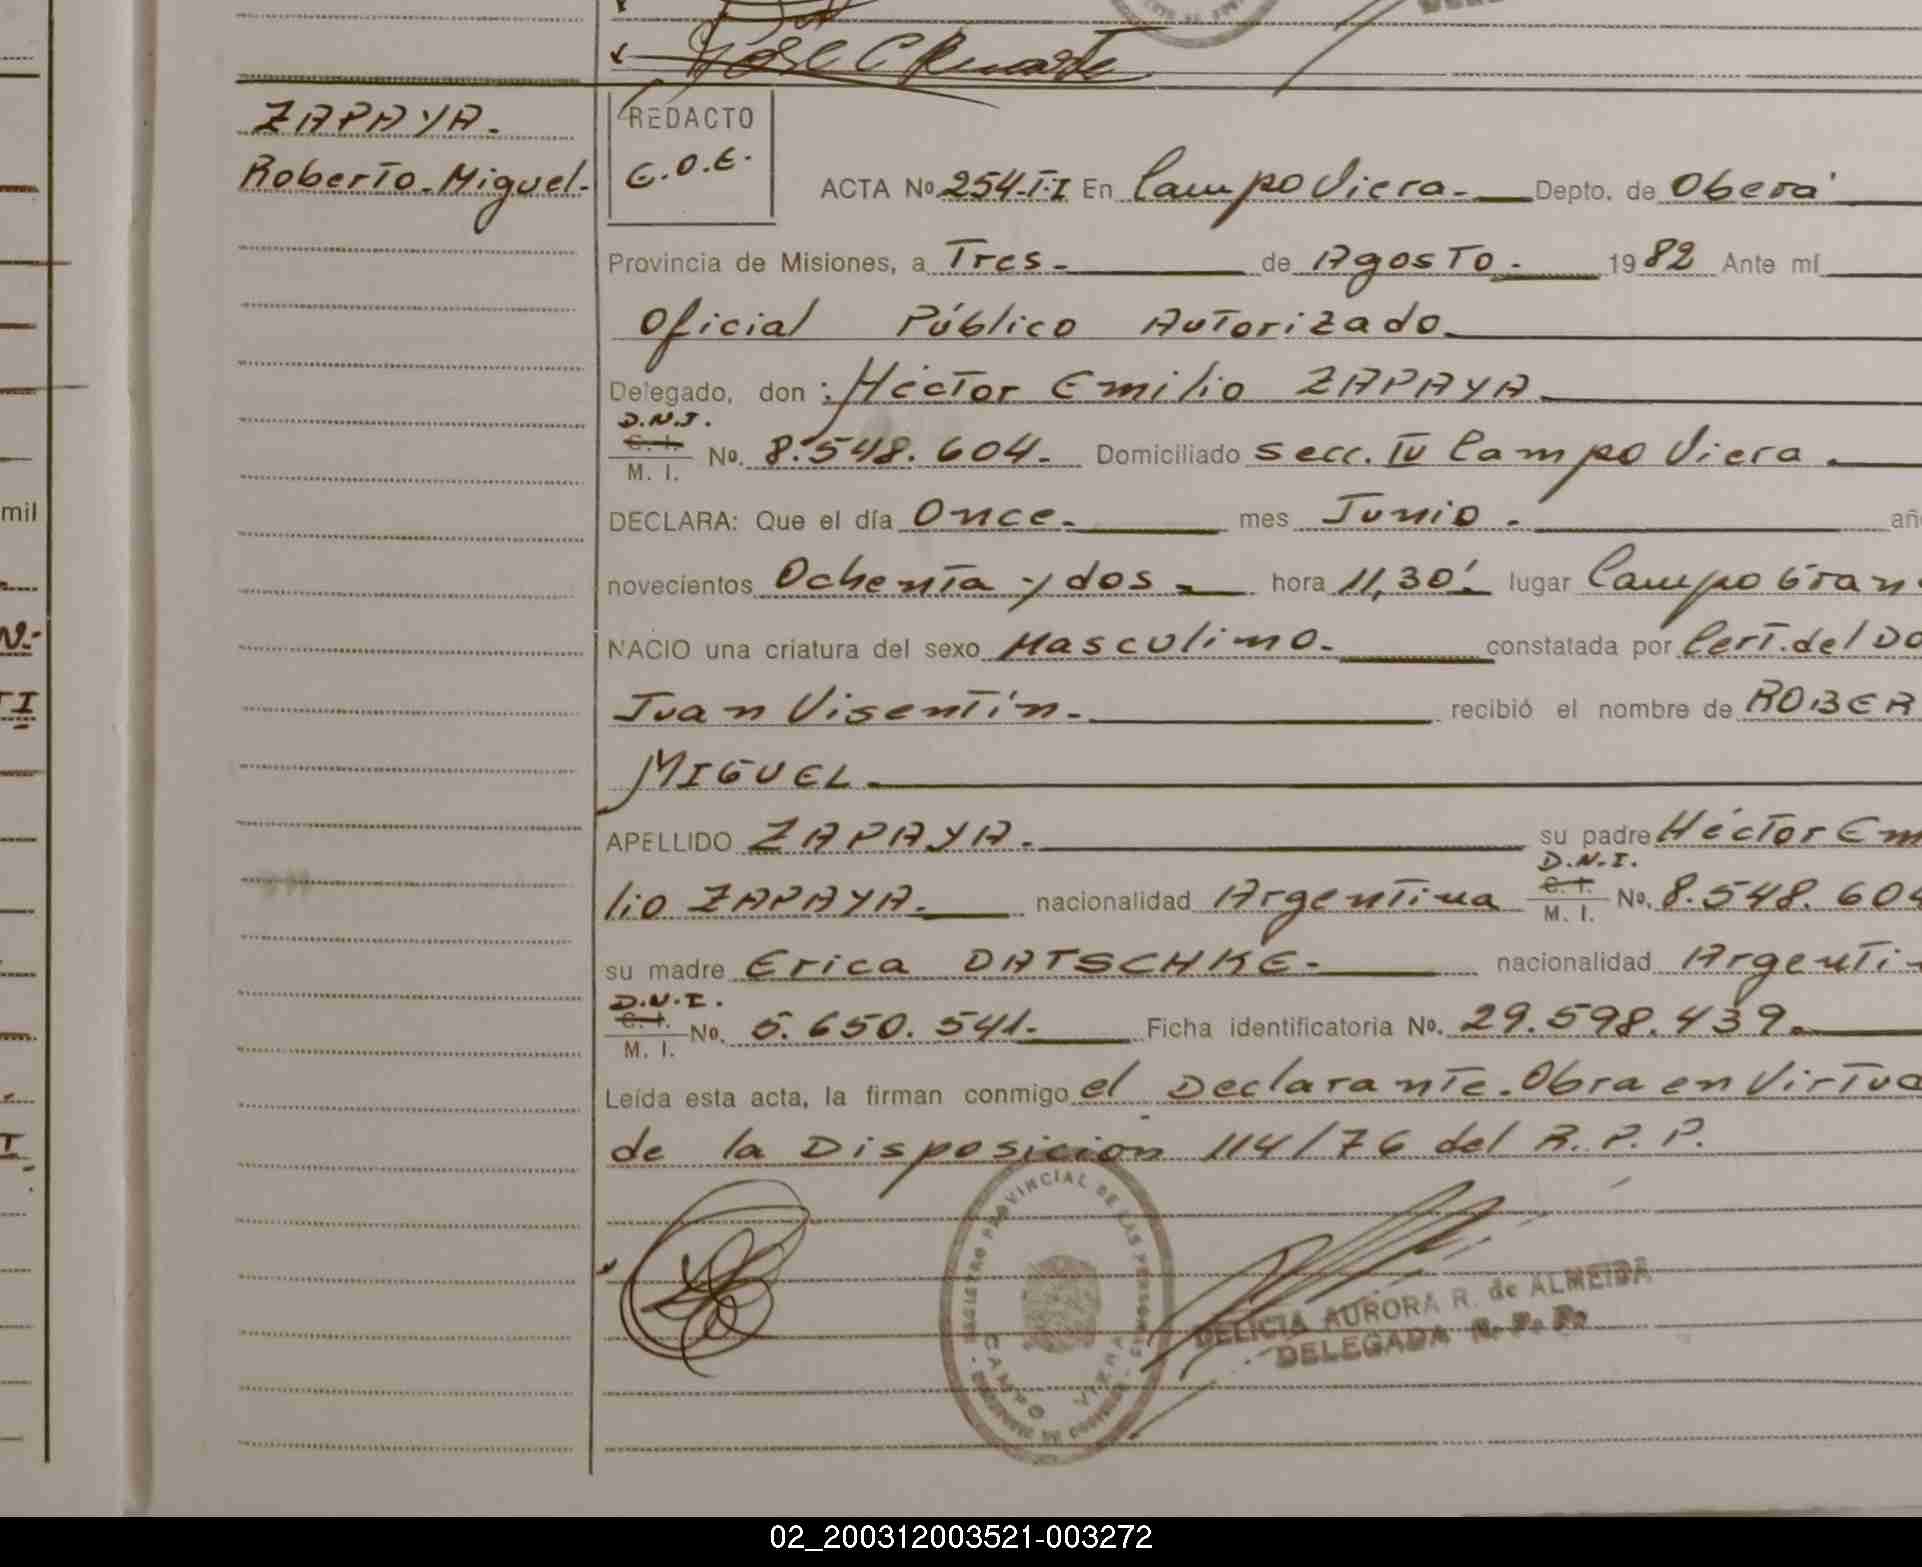 José C
ZAPAYA.
Roberto Miguel.
REDACTO
E.O.E.
ACTA Nº 254-T.I En Campo Viera. Depto. de Oberá
Provincia de Misiones, a Tres. de Agosto. 1982 Ante mí
Oficial Público Autorizado.
Delegado, don: Héctor Emilio ZAPAYA.
D.N.I.
C. I.
M. I. Nº. 8.548.604. Domiciliado secc. IV Campo Viera.
DECLARA: Que el día Once. mes Junio. añ
novecientos Ochenta y dos. hora 11,30'. lugar Campo Gran
NACIO una criatura del sexo Masculino. constatada por Cert. del Do
Juan Visentín. recibió el nombre de ROBER
MIGUEL.
APELLIDO ZAPAYA. su padre Héctor Em
D.N.I.
C. I.
lio ZAPAYA. nacionalidad Argentina M. I. Nº. 8.548.604
su madre Erica DATSCHKE. nacionalidad Argenti
D.N.I.
C. I.
M. I. Nº. 5.650.541. Ficha identificatoria Nº. 29.598.439.
Leída esta acta, la firman conmigo el Declarante. Obra en Virtud
de la Disposición 114/76 del R.P.P.
REGISTRO PROVINCIAL DE LAS PERSONAS
CAMPO VIERA
DELICIA AURORA R. de ALMEIDA
DELEGADA R. P. P.
mil
N.-
TI
I
02_200312003521-003272